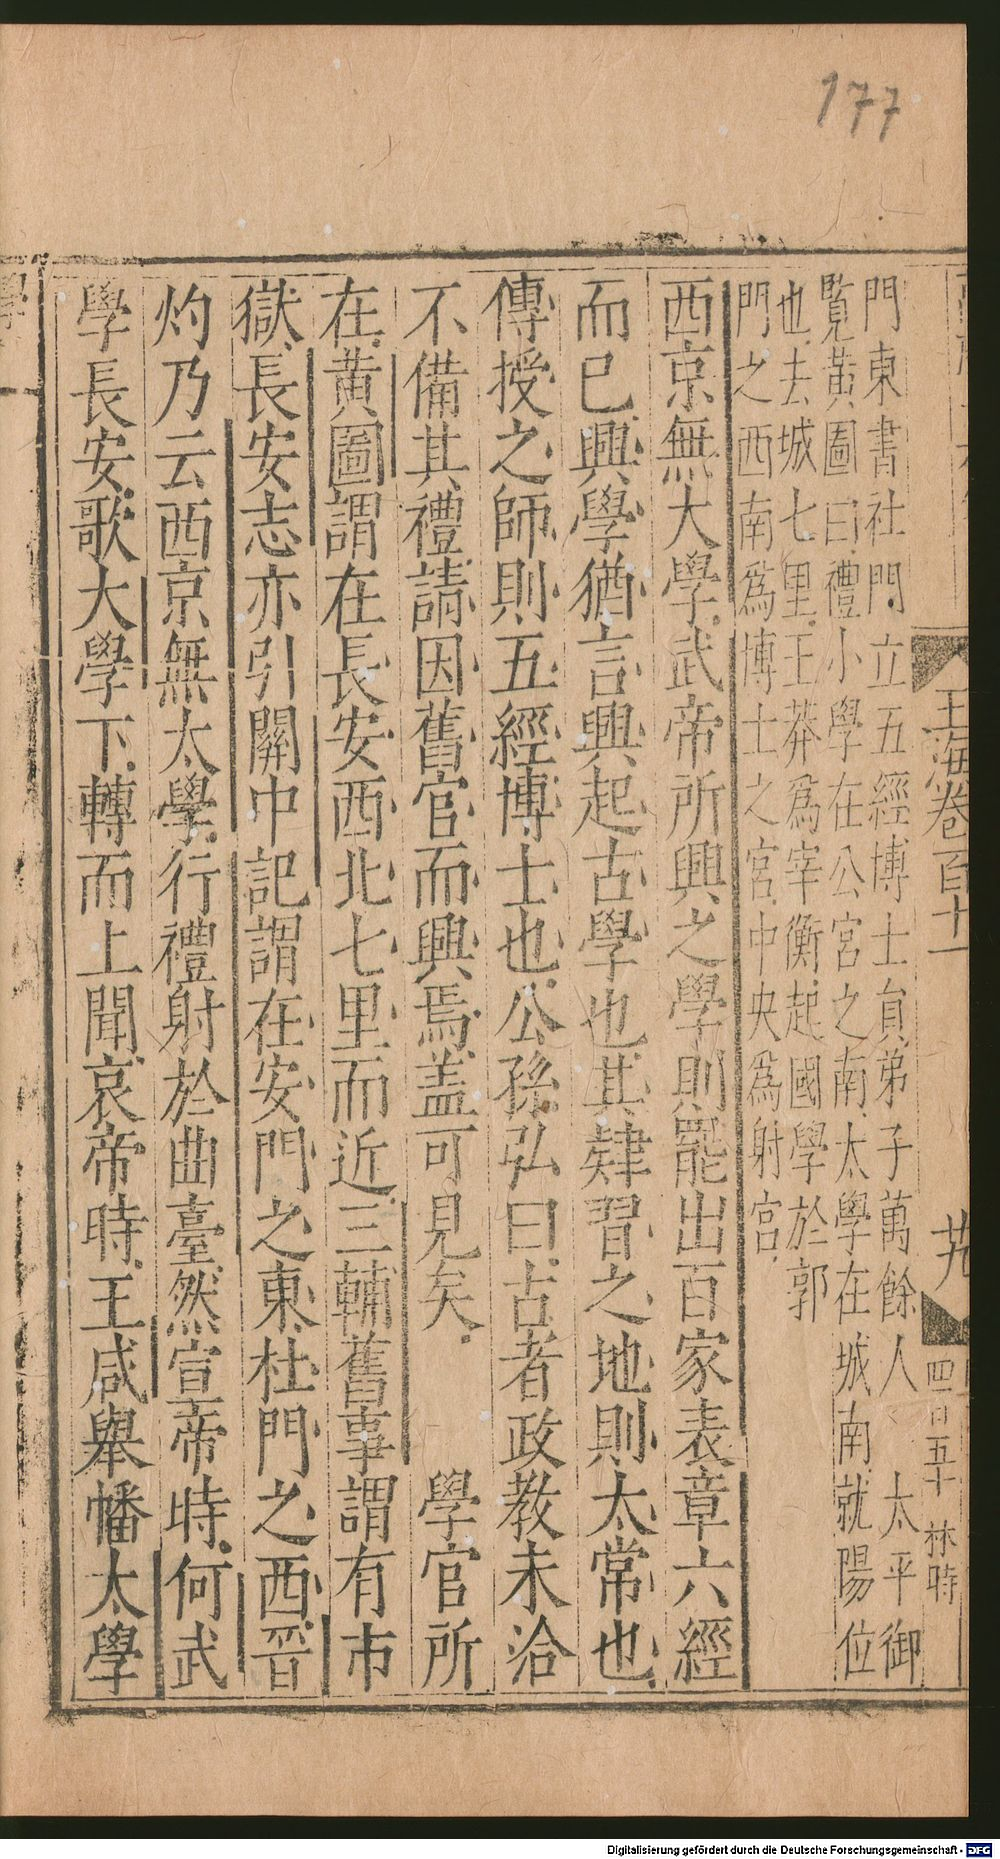 177
玉海卷百十一
四百五十
林時
門東書社門立五經博士員弟子萬餘人 太平御
覧黃圖曰禮小學在公宮之南太學在城南就陽位
也去城七里王莽爲宰衡起國學於郭
門之西南爲博士之宮中央爲射宮
西京無大學武帝所興之學則罷出百家表章六經
而已興學猶言興起古學也其肄習之地則太常也
傳授之師則五經博士也公孫弘曰古者政教未洽
不備其禮請因舊官而興焉盖可見矣 學官所
在黃圖謂在長安西北七里而近三輔舊事謂有市
獄長安志亦引關中記謂在安門之東杜門之西晉
灼乃云西京無太學行禮射於曲臺然宣帝時何武
學長安歌大學下轉而上聞哀帝時王咸舉幡太學
Digitalisierung gefördert durch die Deutsche Forschungsgemeinschaft - DFG